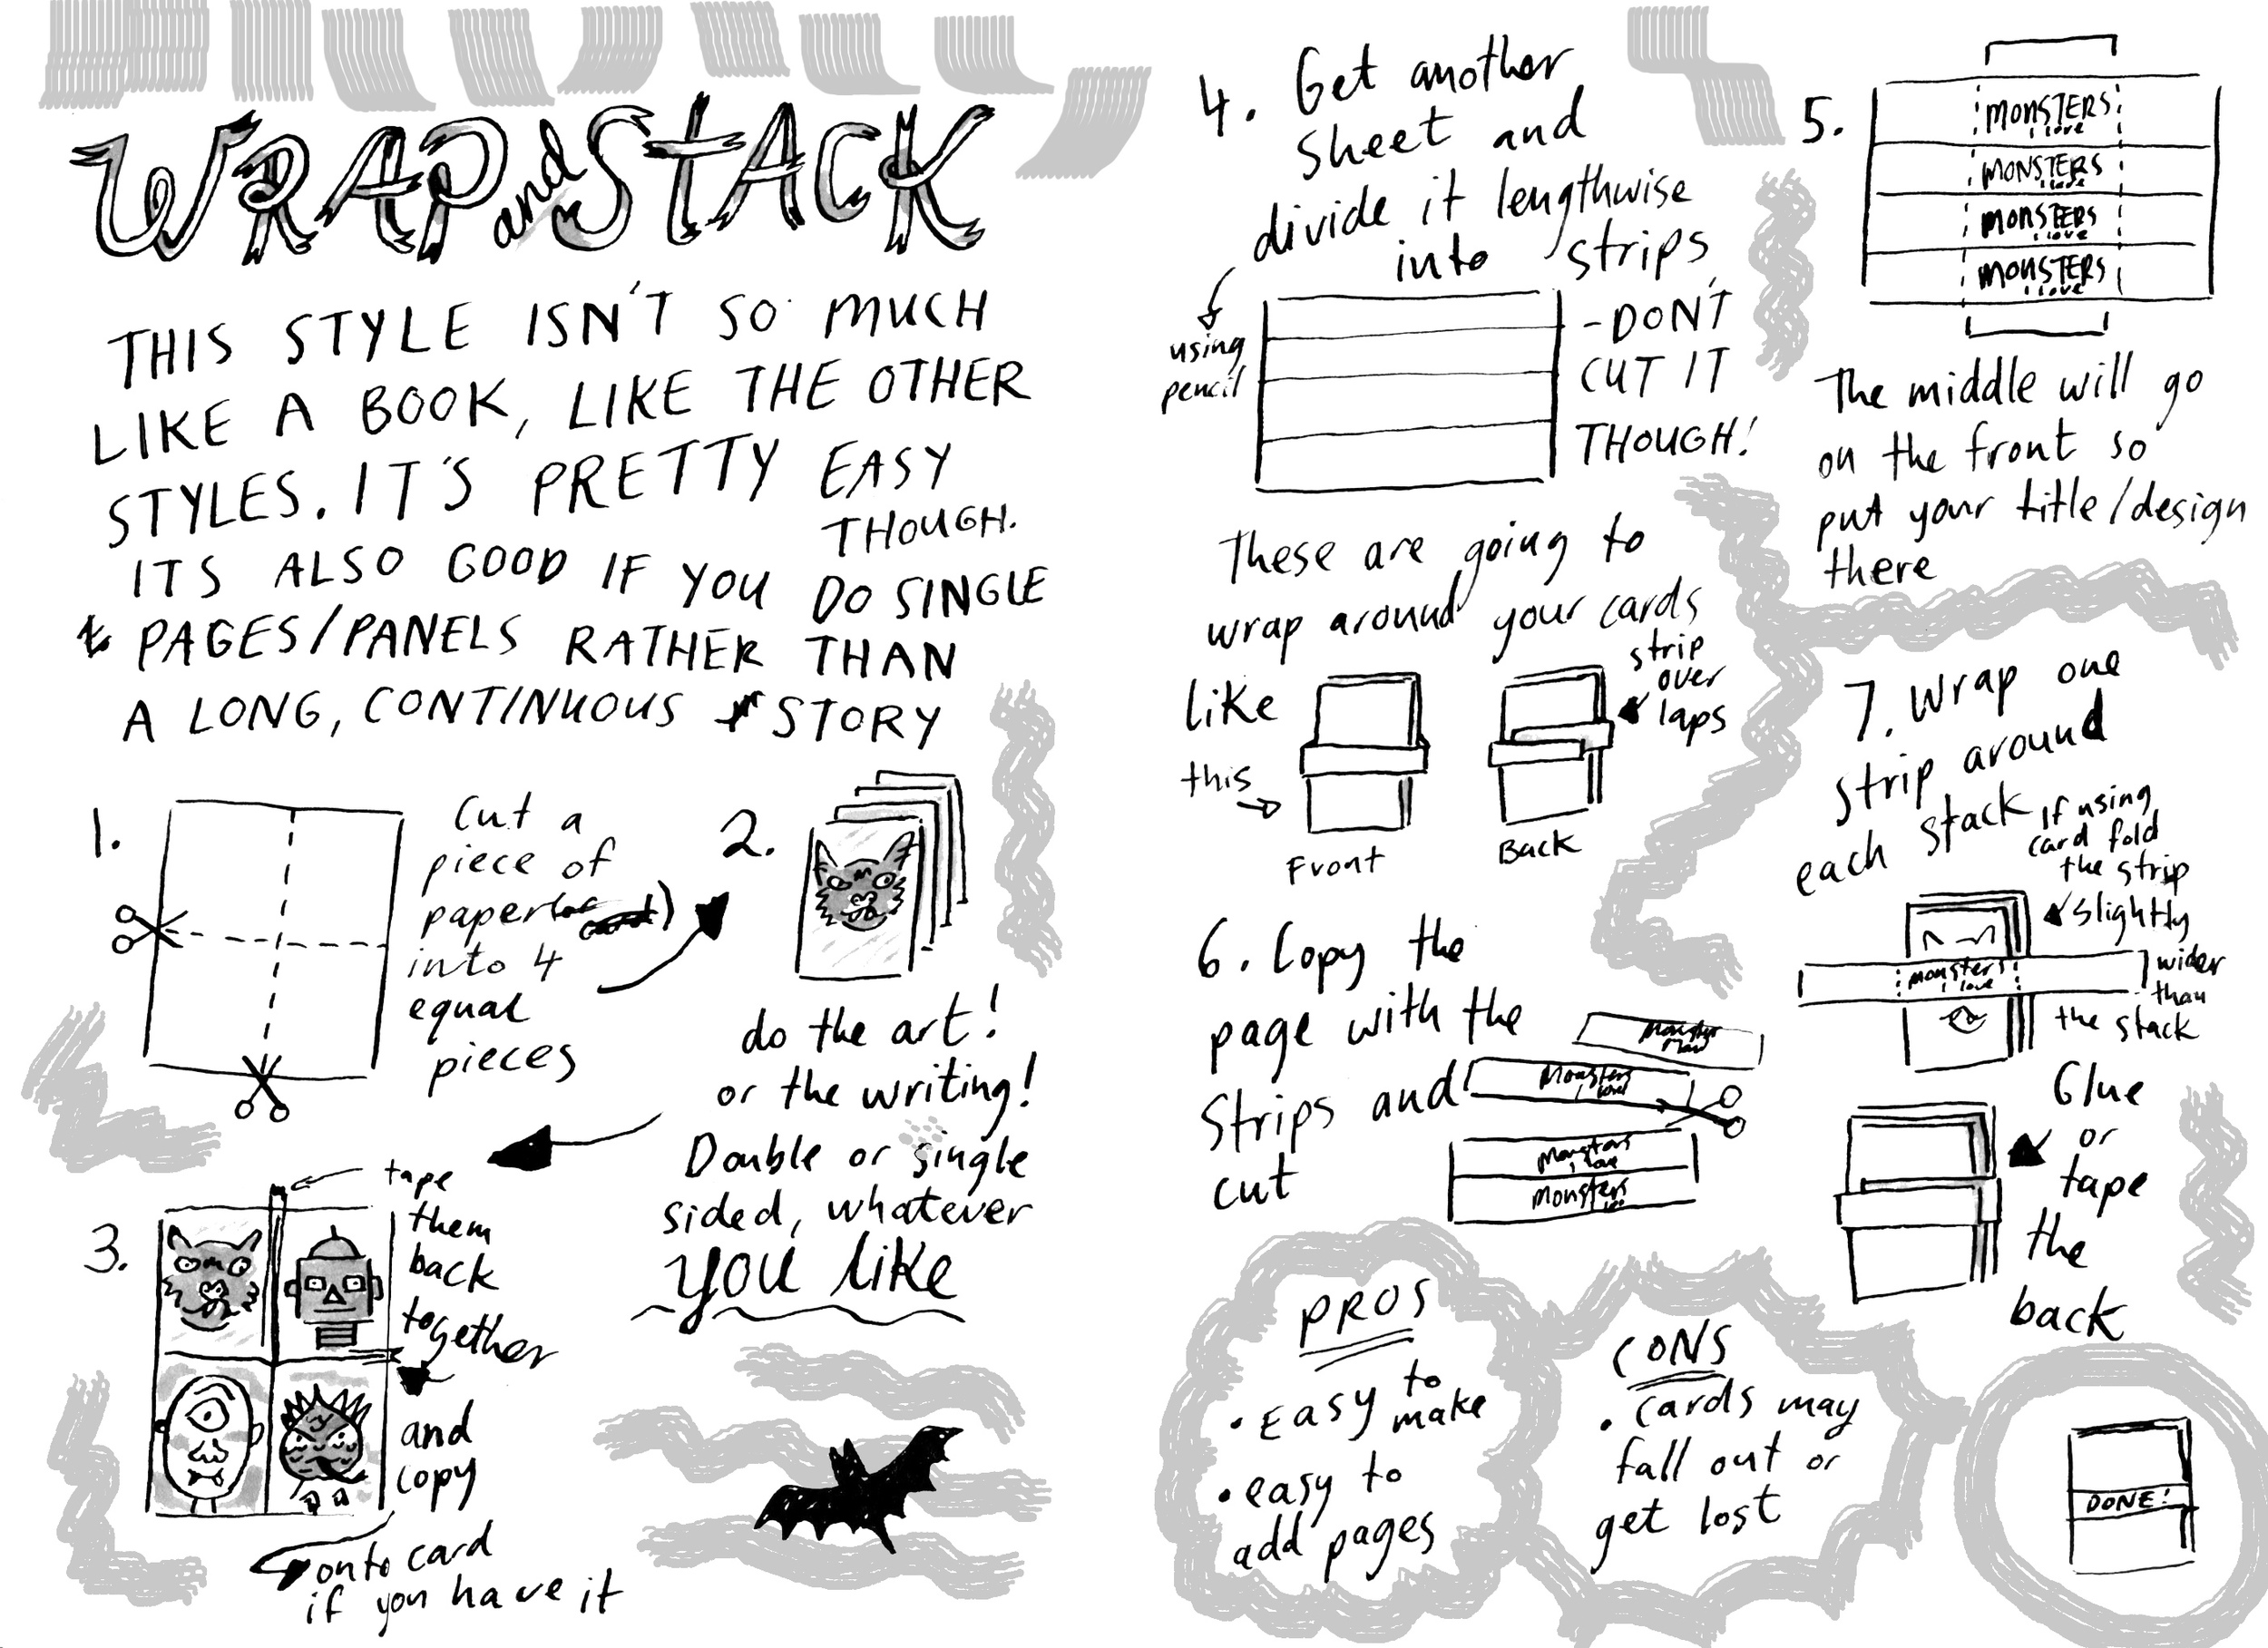 WRAP and STACK
THIS STYLE ISN'T SO MUCH
LIKE A BOOK, LIKE THE OTHER
STYLES. IT'S PRETTY EASY
THOUGH.
ITS ALSO GOOD IF YOU DO SINGLE
PAGES/PANELS RATHER THAN
A LONG, CONTINUOUS STORY
1.
Cut a
piece of
paper
into 4
equal
pieces
2.
do the art!
or the writing!
Double or single
sided, whatever
you like
3.
tape
them
back
together
and
copy
onto card
if you have it
4. Get another
sheet and
divide it lengthwise
into strips
using
pencil
-DON'T
CUT IT
THOUGH!
These are going to
wrap around your cards
like
this
strip
over
laps
Front
Back
5.
MONSTERS
I love
MONSTERS
I love
MONSTERS
I love
MONSTERS
I love
The middle will go
on the front so
put your title/design
there
6. Copy the
page with the
Strips and
cut
Monsters
I love
Monsters
I love
Monsters
7. Wrap one
strip around
each stack
If using
card fold
the strip
slightly
wider
than
the stack
monsters
I love
Glue
or
tape
the
back
PROS
• Easy to
make
• easy to
add pages
CONS
• Cards may
fall out or
get lost
DONE!